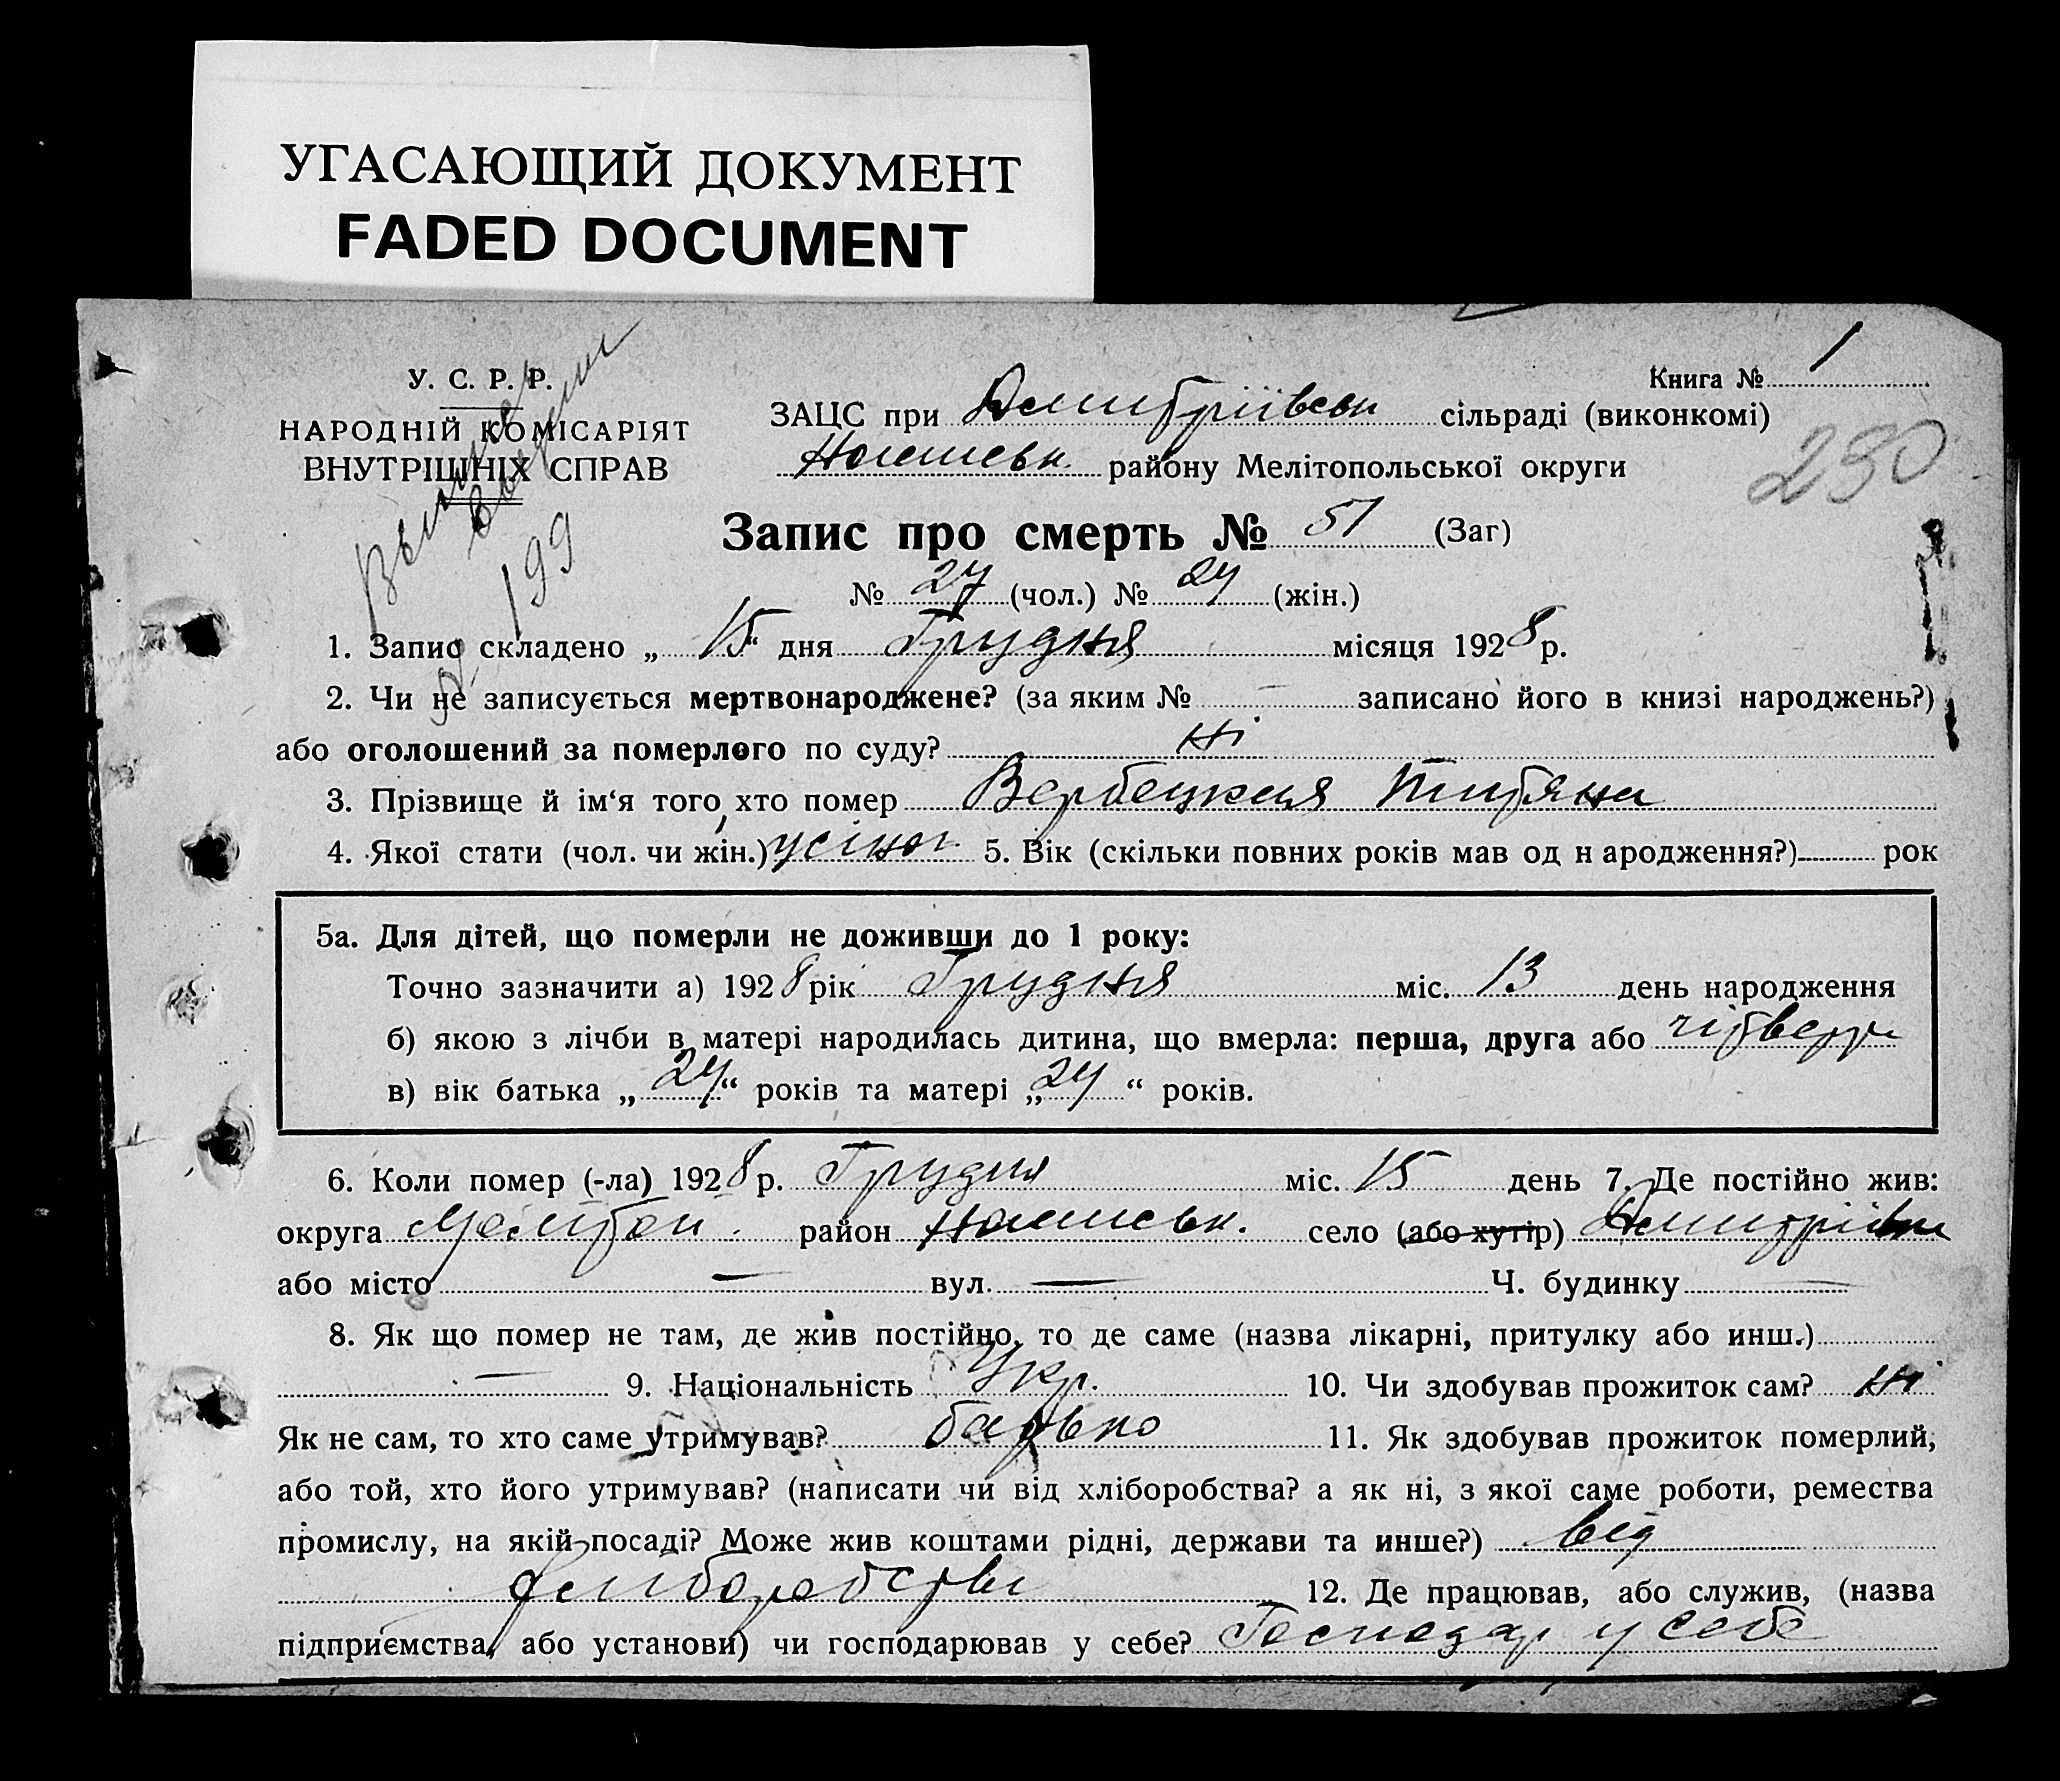 УГАСАЮЩИЙ ДОКУМЕНТ
FADED DOCUMENT
У. С. Р. Р.
НАРОДНІЙ КОМІСАРІЯТ
ВНУТРІШНІХ СПРАВ
Книга № 1
ЗАЦС при Дмитріївськ сільраді (виконкомі)
району Мелітопольської округи
230
Запис про смерть № 51 (Заг)
№ 27 (чол.) № 24 (жін.)
199
1. Запис складено „ 15 “ дня Грудня місяця 1928 р.
2. Чи не записується мертвонароджене? (за яким № – записано його в книзі народжень?)
або оголошений за померлого по суду? Ні
3. Прізвище й ім‘я того, хто помер Вербецкая Татяна
4. Якої стати (чол. чи жін.) жіноч. 5. Вік (скільки повних років мав од н ародження?) рок
5а. Для дітей, що померли не доживши до 1 року:
Точно зазначити а) 1928 рік Грудня міс. 13 день народження
б) якою з лічби в матері народилась дитина, що вмерла: перша, друга або четверта
в) вік батька „ 24 “ років та матері „ 24 “ років.
6. Коли помер (-ла) 1928 р. Грудня міс. 15 день 7. Де постійно жив:
округа Мелітоп. район село (або хутір) Дмитрівка
або місто — вул. — Ч. будинку —
8. Як що помер не там, де жив постійно, то де саме (назва лікарні, притулку або инш.)
— 9. Національність Укр. 10. Чи здобував прожиток сам? Ні
Як не сам, то хто саме утримував? батько 11. Як здобував прожиток померлий,
або той, хто його утримував? (написати чи від хліборобства? а як ні, з якої саме роботи, ремества
промислу, на якій посаді? Може жив коштами рідні, держави та инше?) від
хліборобства 12. Де працював, або служив, (назва
підприємства, або установи) чи господарював у себе? Господар у себе